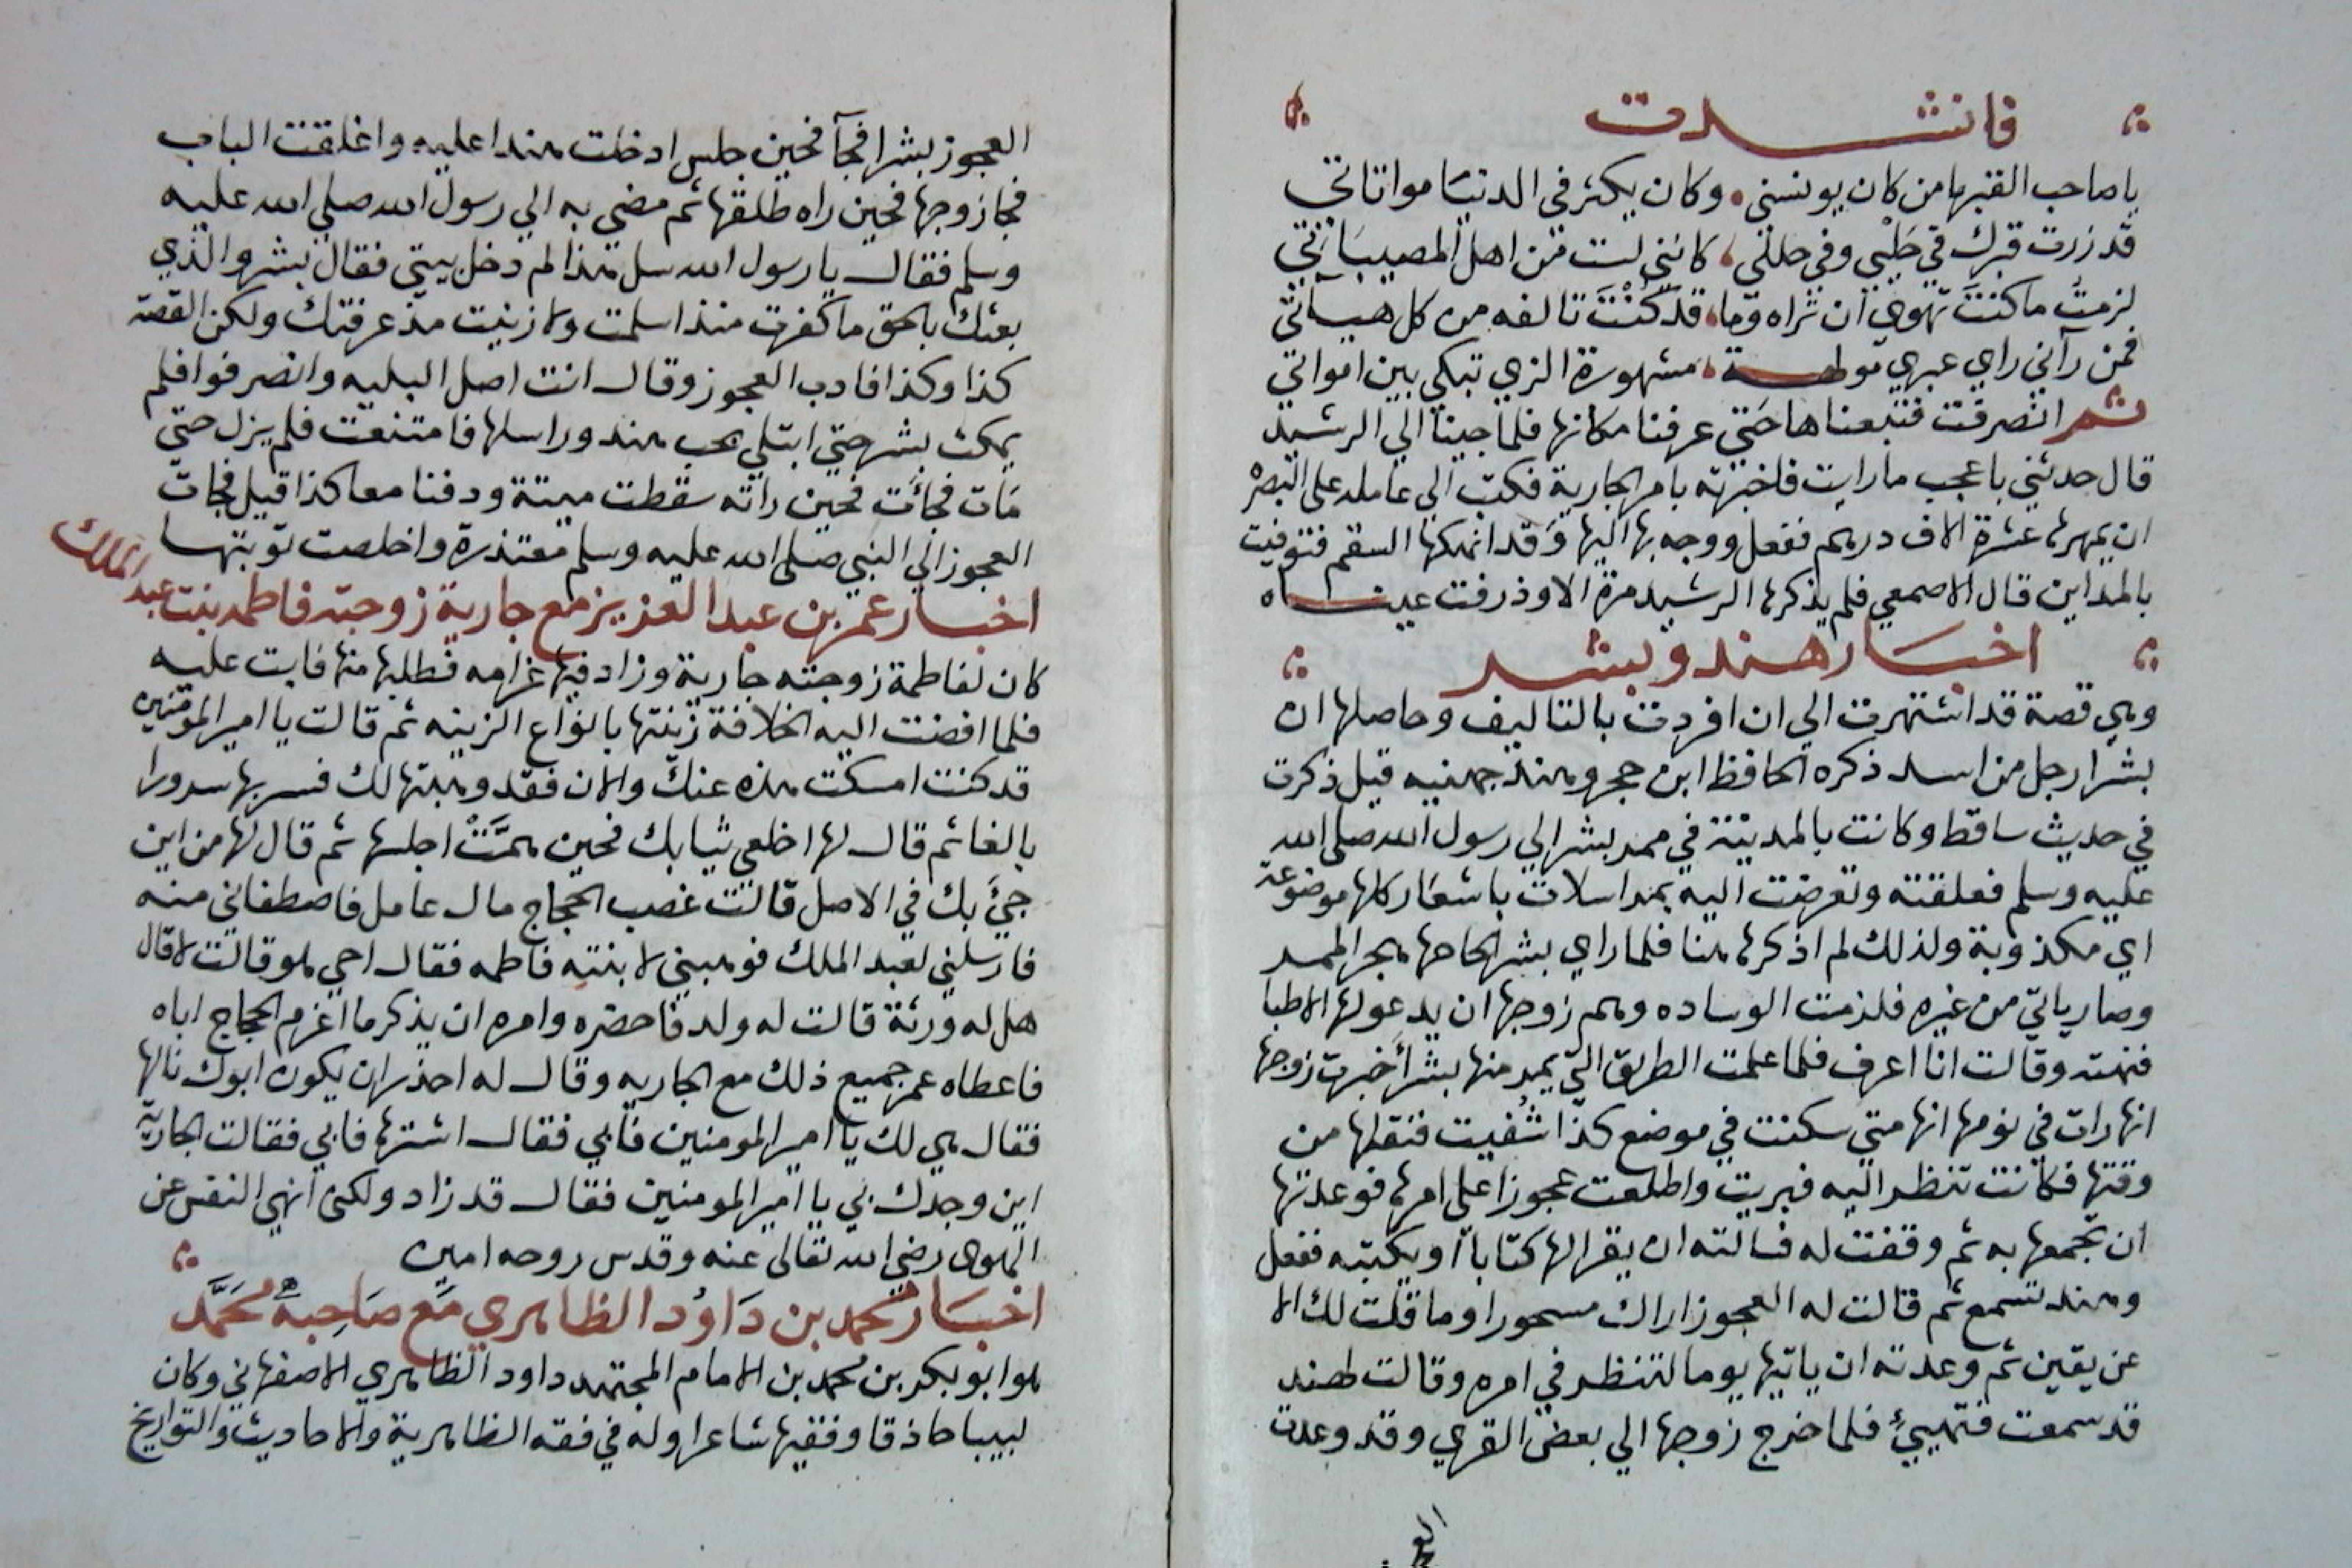 فانشدت
يا صاحب القبر يا من كان يونسني وكان يكثر في الدنيا مواتاتي
قد زرت قبرك في حلي وفي حللي كانني لست من اهل المصيباتي
لزمت ما كنت تهوي ان تراه وما قد كنت تالفه من كل هيآتي
فمن رآني راي عبري مولهة مشهورة الزي تبكي بين امواتي
ثم انصرفت فتبعناها حتي عرفنا مكانها فلما جينا الي الرشيد
قال حدثني باعجب ما رايت فاخبرته بامر الجارية فكتب الي عامله علي البصره
ان يمهرها عشرة الاف درهم ففعل ووجه بها اليها وقد انهكها السقم فتوفيت
بالمداين قال الاصمعي فلم يذكرها الرشيد مرة الا وذرفت عيناه
اخبار هند وبشر
وهي قصة قد اشتهرت الي ان افردت بالتاليف وحاصلها ان
بشرا رجل من اسد ذكره الحافظ ابن حجر وهند جهنيه قيل ذكرت
في حديث ساقط وكانت بالمدينة في ممر بشر الي رسول الله صلي الله
عليه وسلم فعلقته وتعرضت اليه بمراسلات باشعار كلها موضوعة
اي مكذوبة ولذلك لم اذكرها هنا فلما راي بشر الحاحها هجر الممر
وصار ياتي من غيره فلزمت الوساده وهم زوجها ان يدعو لها الاطبا
فنهته وقالت انا اعرف فلما علمت الطريق التي يمر منها بشر أخبرت زوجها
انها رات في نومها انها متي سكنت في موضع كذا شفيت فنقلها من
وقتها فكانت تنظر اليه فبريت واطلعت عجوزا علي امرها فوعدتها
ان تجمعها به ثم وقفت له فسالته ان يقرا لها كتابا او يكتبه ففعل
وهند تسمع ثم قالت له العجوز اراك مسحورا وما قلت لك الا
عن يقين ثم وعدته ان ياتيها يوما لتنظر في امره وقالت لهند
قد سمعت فتهييء فلما خرج زوجها الي بعض القري وقد وعدت
العجوز بشرا فجآ فحين جلس ادخلت هندا عليه واغلقت الباب
فجا زوجها فحين راه طلقها ثم مضي به الي رسول الله صلي الله عليه
وسلم فقال يا رسول الله سل هذا لم دخل بيتي فقال بشر والذي
بعثك بالحق ما كفرت منذ اسلمت ولا زنيت مذ عرفتك ولكن القصة
كذا وكذا فادب العجوز وقال انت اصل البليه وانصرفوا فلم
يمكث بشر حتي ابتلي بحب هند وراسلها فامتنعت فلم يزل حتي
مات فجائت فحين راته سقطت ميتة ودفنا معا كذا قيل فجات
العجوز الي النبي صلي الله عليه وسلم معتذرة واخلصت توبتها
اخبار عمر بن عبد العزيز مع جارية زوجته فاطمه بنت عبد الملك
كان لفاطمة زوجته جارية وزاد فيها غرامه فطلبها منها فابت عليه
فلما افضت اليه الخلافة زينتها بانواع الزينه ثم قالت يا امير المومنين
قد كنت امسكت هذه عنك والان فقد وهبتها لك فسر بها سرورا
بالغا ثم قال لها اخلعي ثيابك فحين همت اجلسها ثم قال لها من اين
جيء بك في الاصل قالت غصب الحجاج مال عامل فاصطفاني منه
فارسلني لعبد الملك فوهبني لابنته فاطمه فقال احي هو قالت لا قال
هل له ورثة قالت له ولد فاحضره وامره ان يذكر ما اغرم الحجاج اباه
فاعطاه عمر جميع ذلك مع الجاريه وقال له احذر ان يكون ابوك نالها
فقال هي لك يا امير المومنين فابي فقال اشترها فابي فقالت الجارية
اين وجدك بي يا امير المومنين فقال قد زاد ولكن انهي النفس عن
الهوي رضي الله تعالي عنه وقدس روحه امين
اخبار محمد بن داود الظاهري مع صاحبه محمد
هو ابو بكر بن محمد بن الامام المجتهد داود الظاهري الاصفهاني وكان
لبيبا حاذقا وفقيها شاعرا وله في فقه الظاهرية والاحاديث والتواريخ